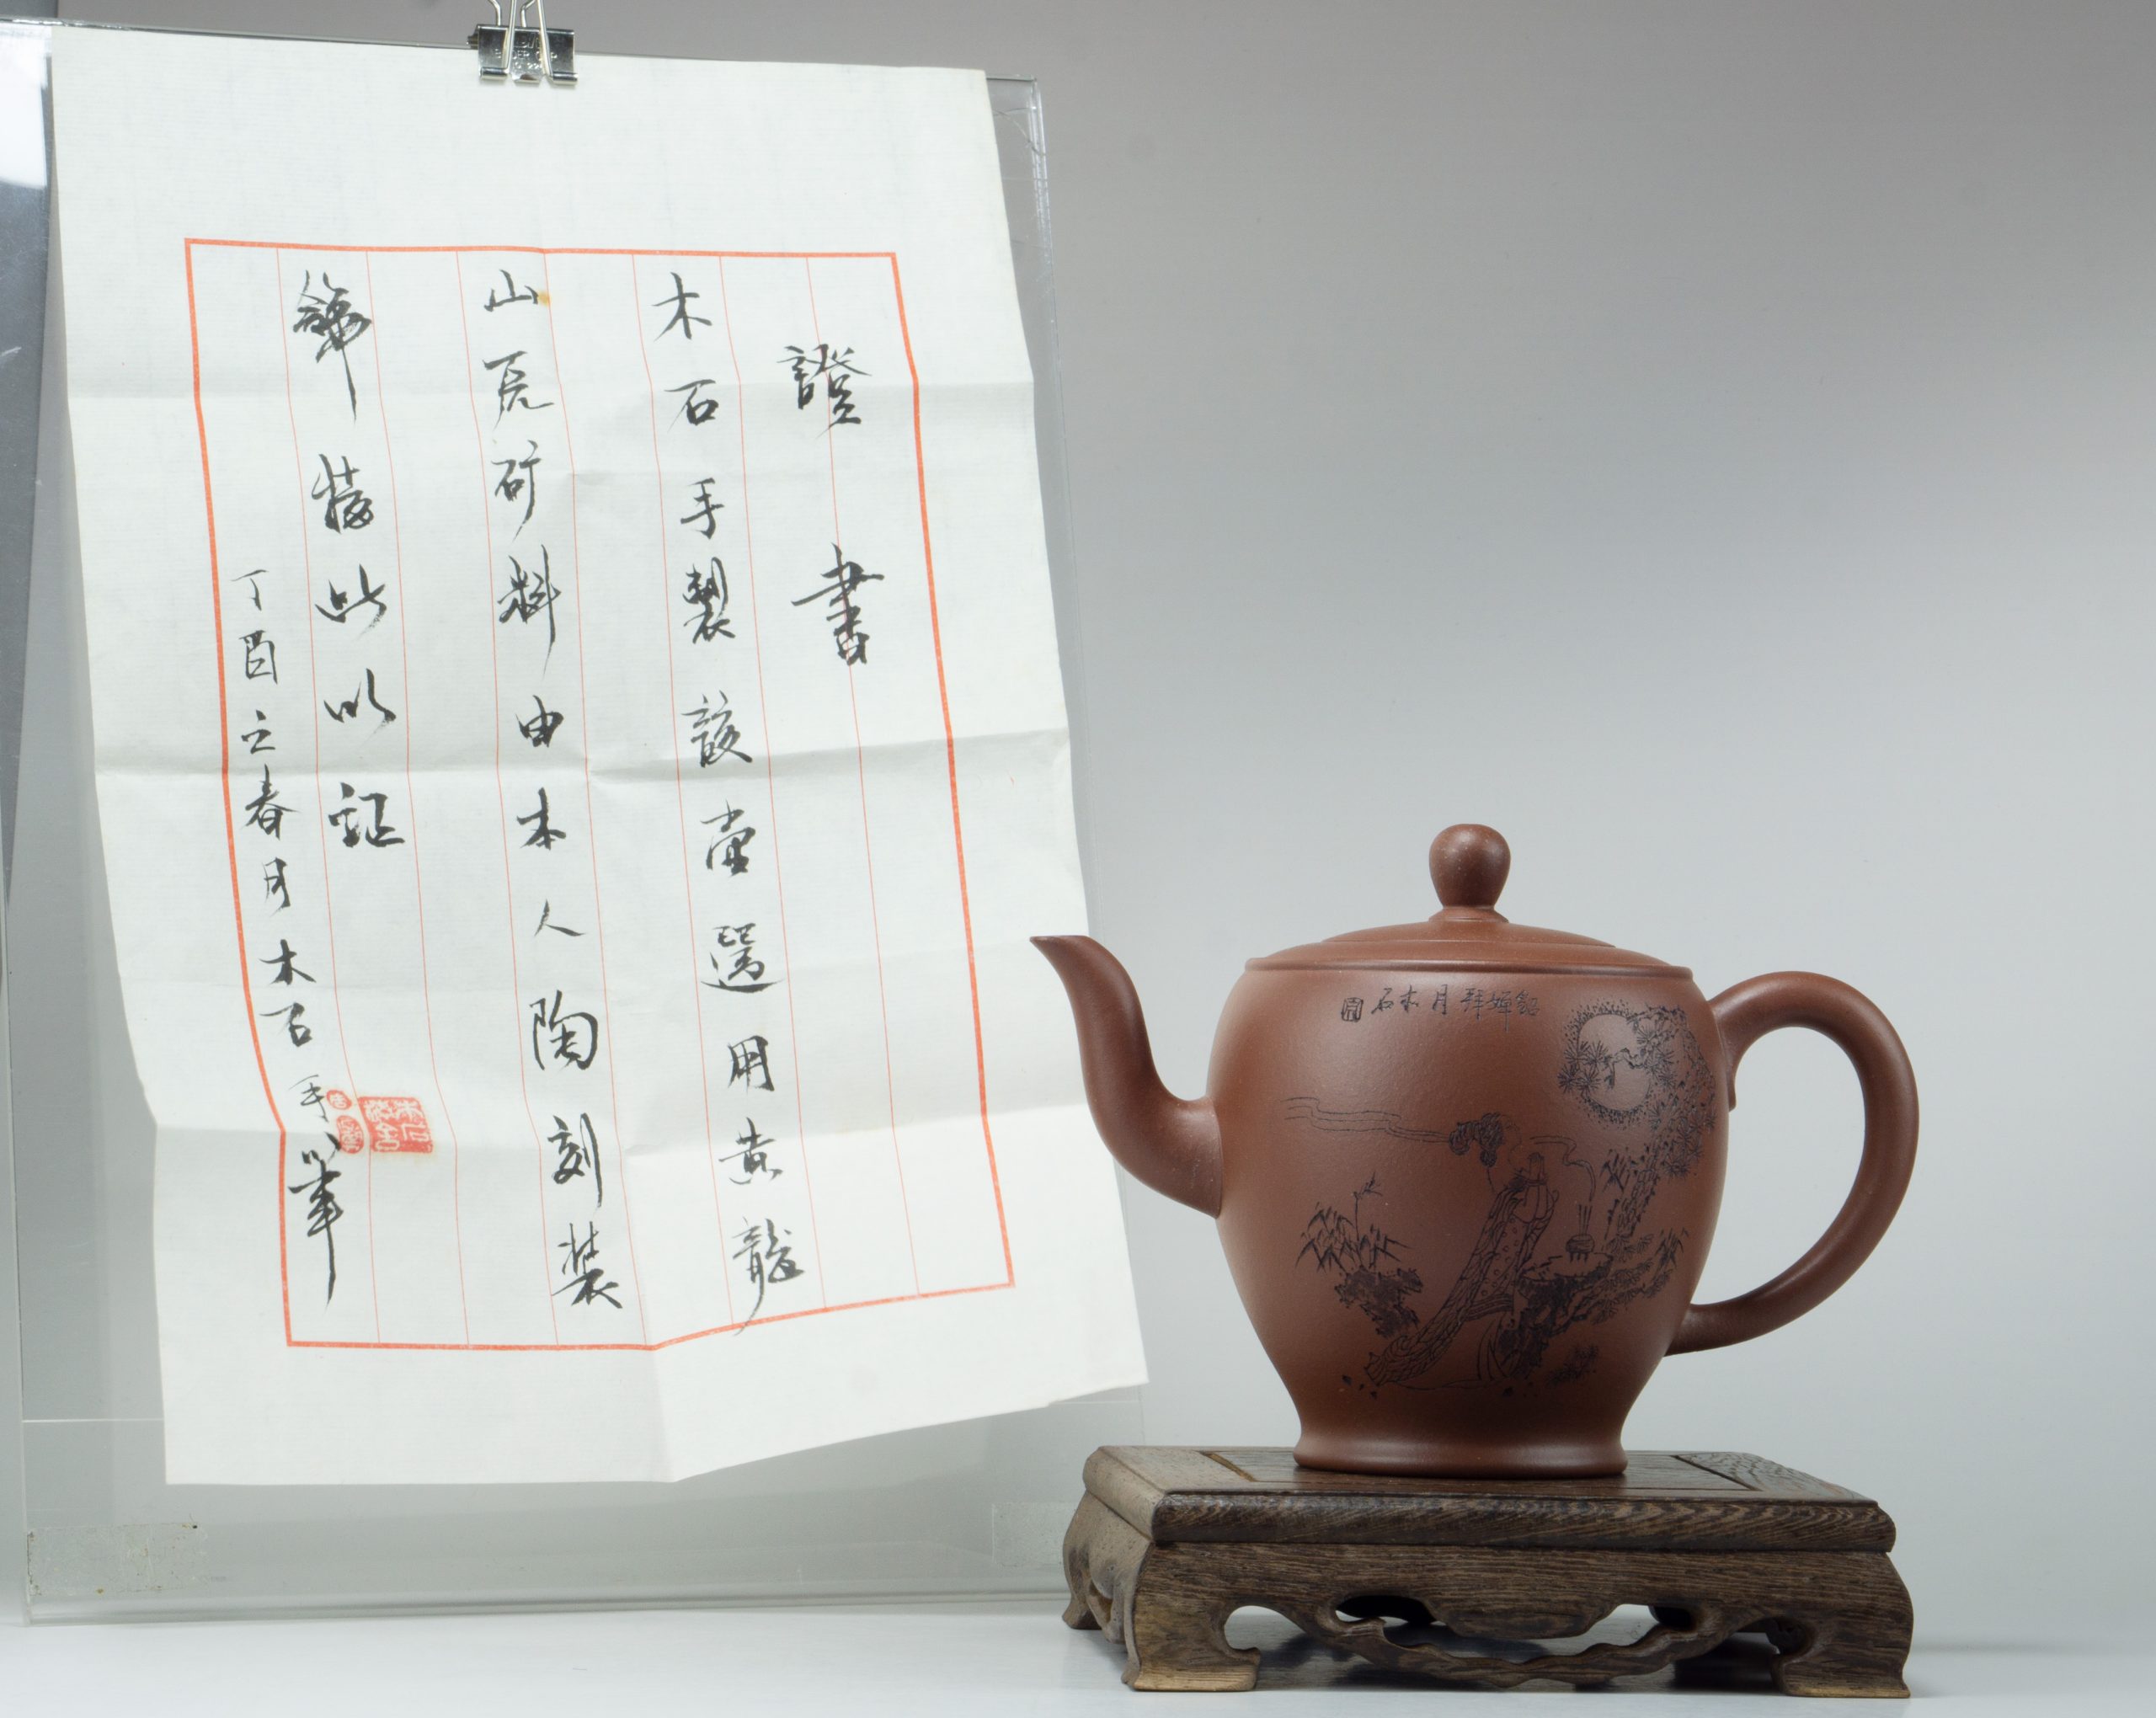 證書
木石手製該壺選用黃龍
山底矿料由本人陶刻装
飾特此以証
丁酉之春月木石手筆
木石
貂嬋拜月木石